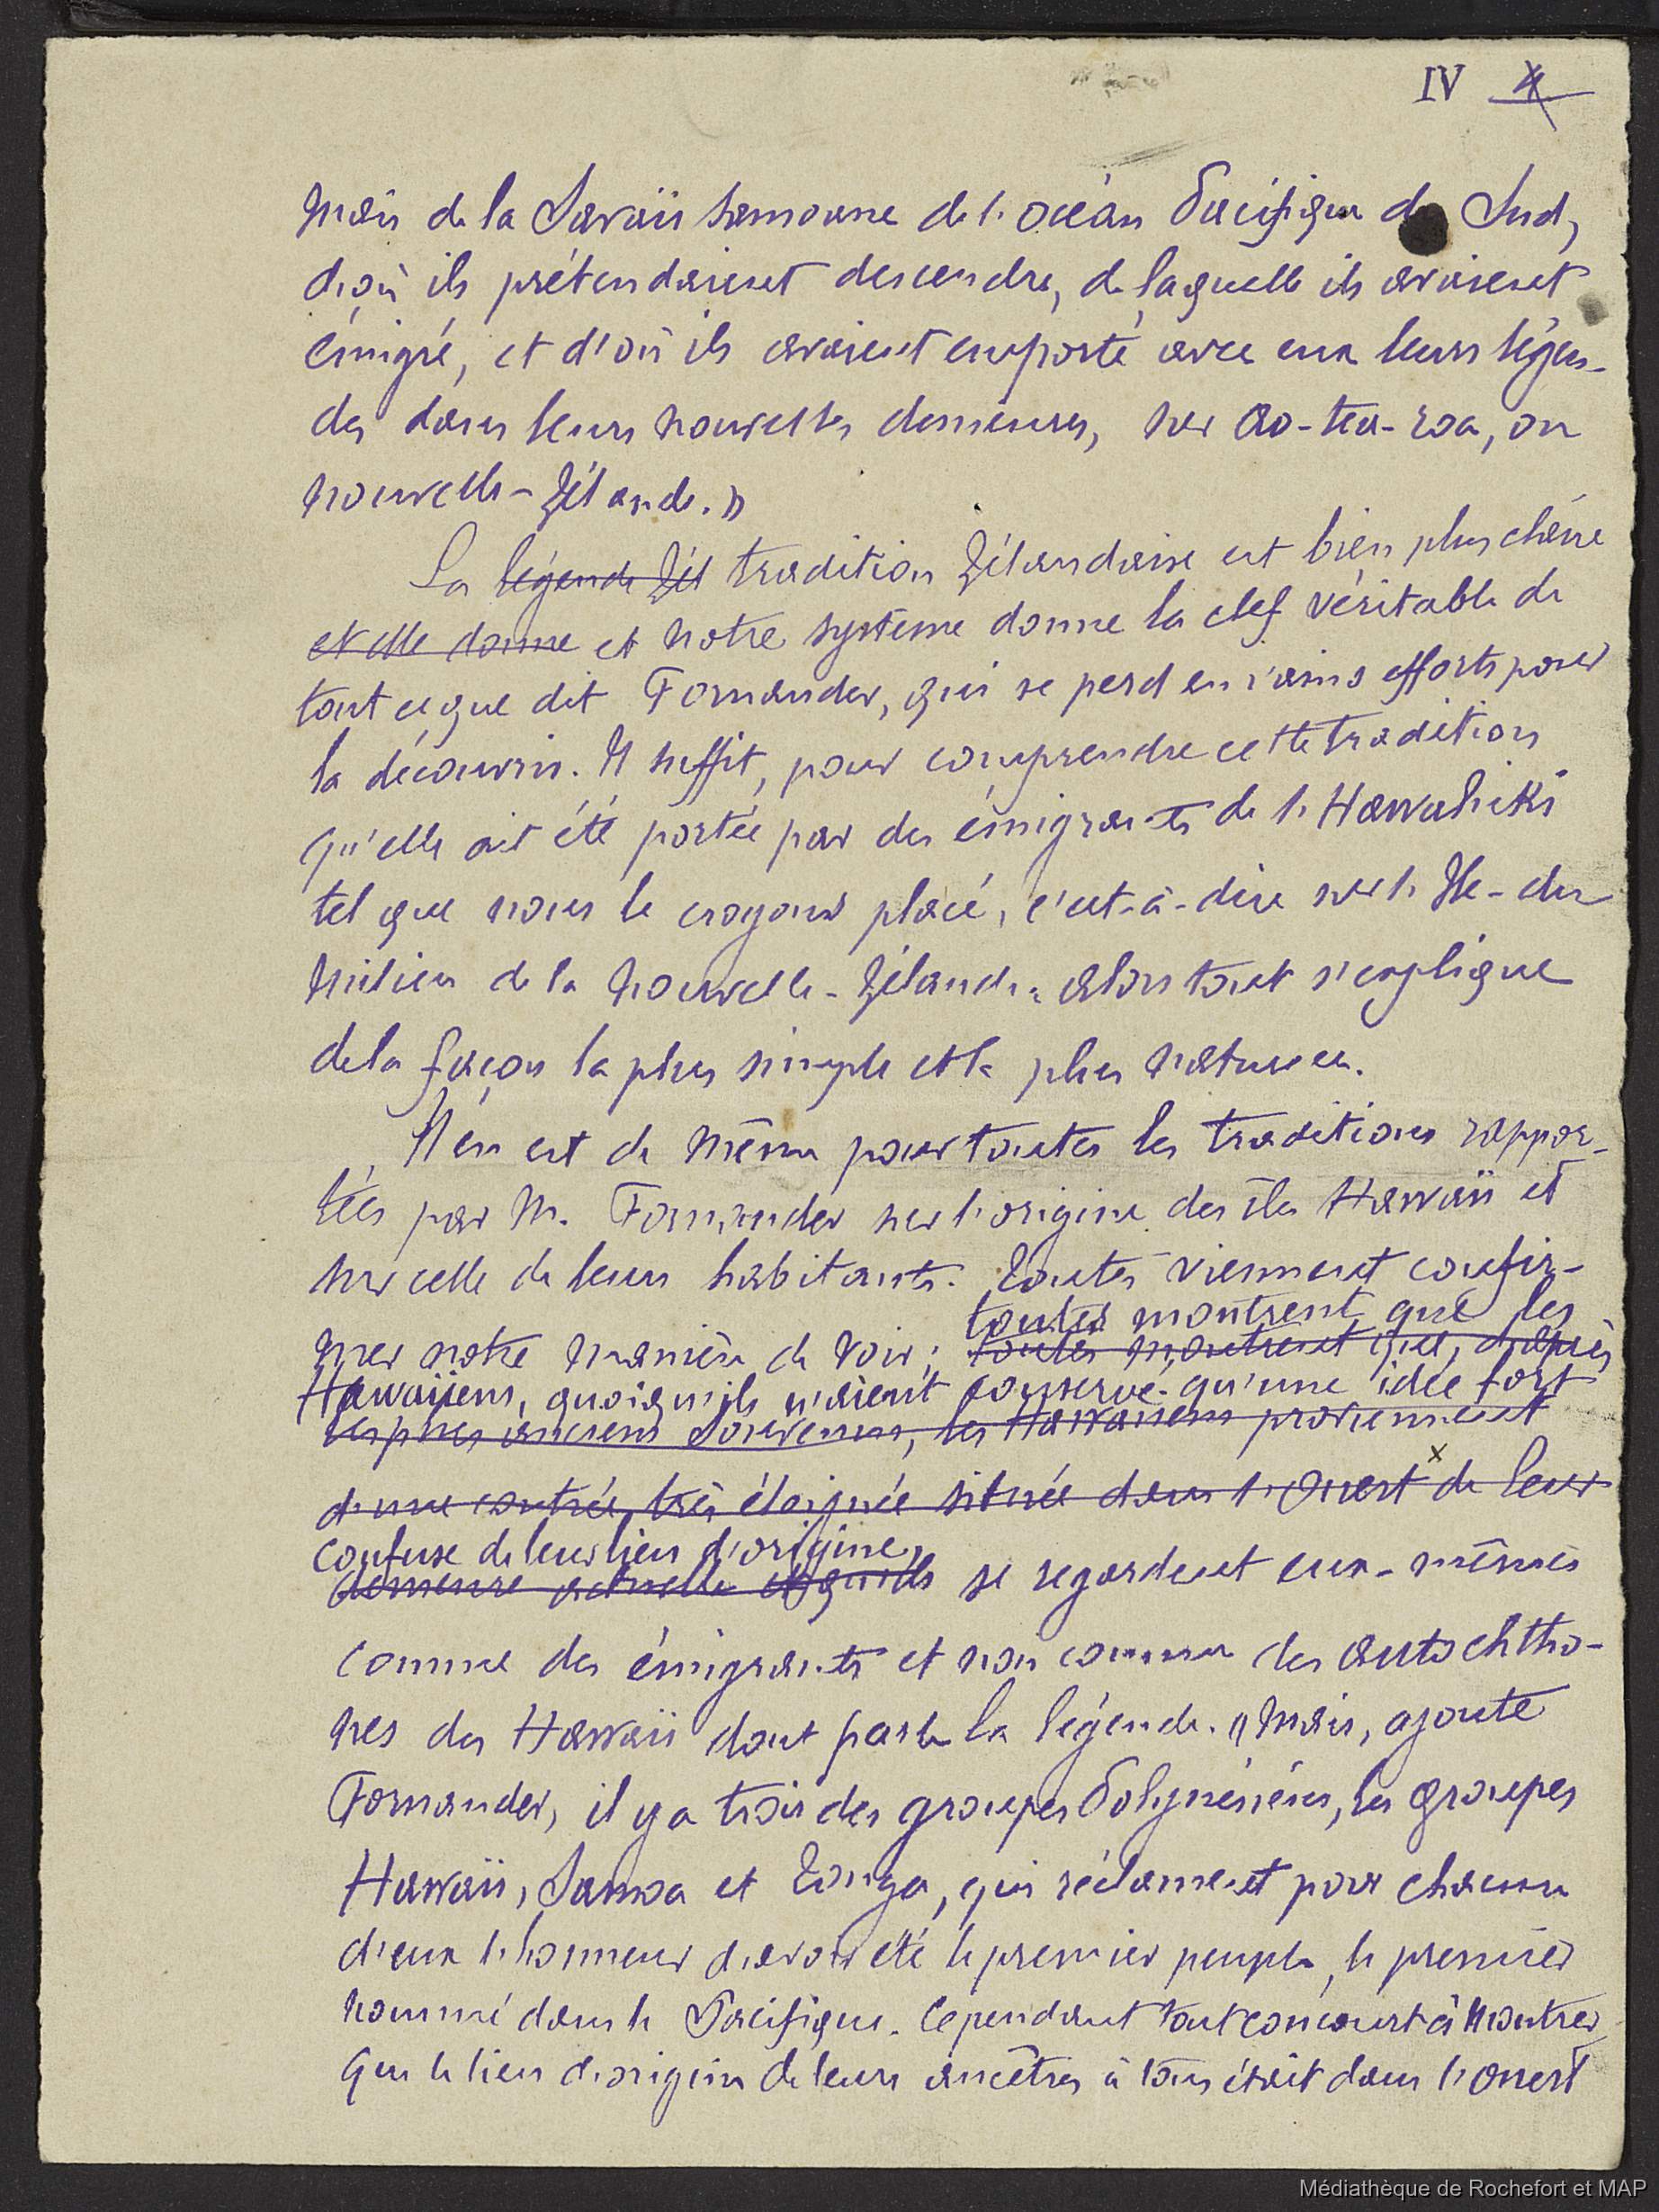 IV 4
Mais de la Savaii Samoane de l'océan Pacifique du Sud,
d'où ils prétendaient descendre, de laquelle ils avaient
émigré, et d'où ils avaient emporté avec eux leurs légen-
des dans leurs nouvelles demeures, sur Ao-tea-roa, ou
Nouvelle-Zélande. »
La légende Zél tradition Zélandaise est bien plus claire
et elle donne et notre système donne la clef véritable de
tout ce que dit Fornander, qui se perd en vains efforts pour
la découvrir. Il suffit, pour comprendre cette tradition
qu'elle ait été portée par des émigrants de l'Hawahiki
tel que nous le croyons placé, c'est-à-dire sur l'Ile-du
Milieu de la Nouvelle-Zélande. Alors tout s'explique
de la façon la plus simple et la plus naturelle.
Il en est de même pour toutes les traditions rappor-
tées par M. Fornander sur l'origine des îles Hawaii et
sur celle de leurs habitants. Toutes viennent confir-
toutes montrent que les
mer notre manière de voir ; toutes montrent que, d'après
Hawaïiens, quoiqu'ils n'aient conservé qu'une idée fort
les plus anciens souvenirs, les Hawaiiens proviennent
d'une contrée très éloignée située dans l'Ouest x de leur
confuse de leur lieu d'origine,
demeure actuelle et qu'ils se regardent eux-mêmes
comme des émigrants et non comme les autochtho-
nes des Hawaii dont parle la légende. « Mais, ajoute
Fornander, il y a trois des groupes Polynésiens, les groupes
Hawaii, Samoa et Tonga, qui réclament pour chacun
d'eux l'honneur d'avoir été le premier peuple, le premier
nommé dans le Pacifique. Cependant tout concourt à montrer
que le lieu d'origine de leurs ancêtres à tous était dans l'Ouest
Médiathèque de Rochefort et MAP